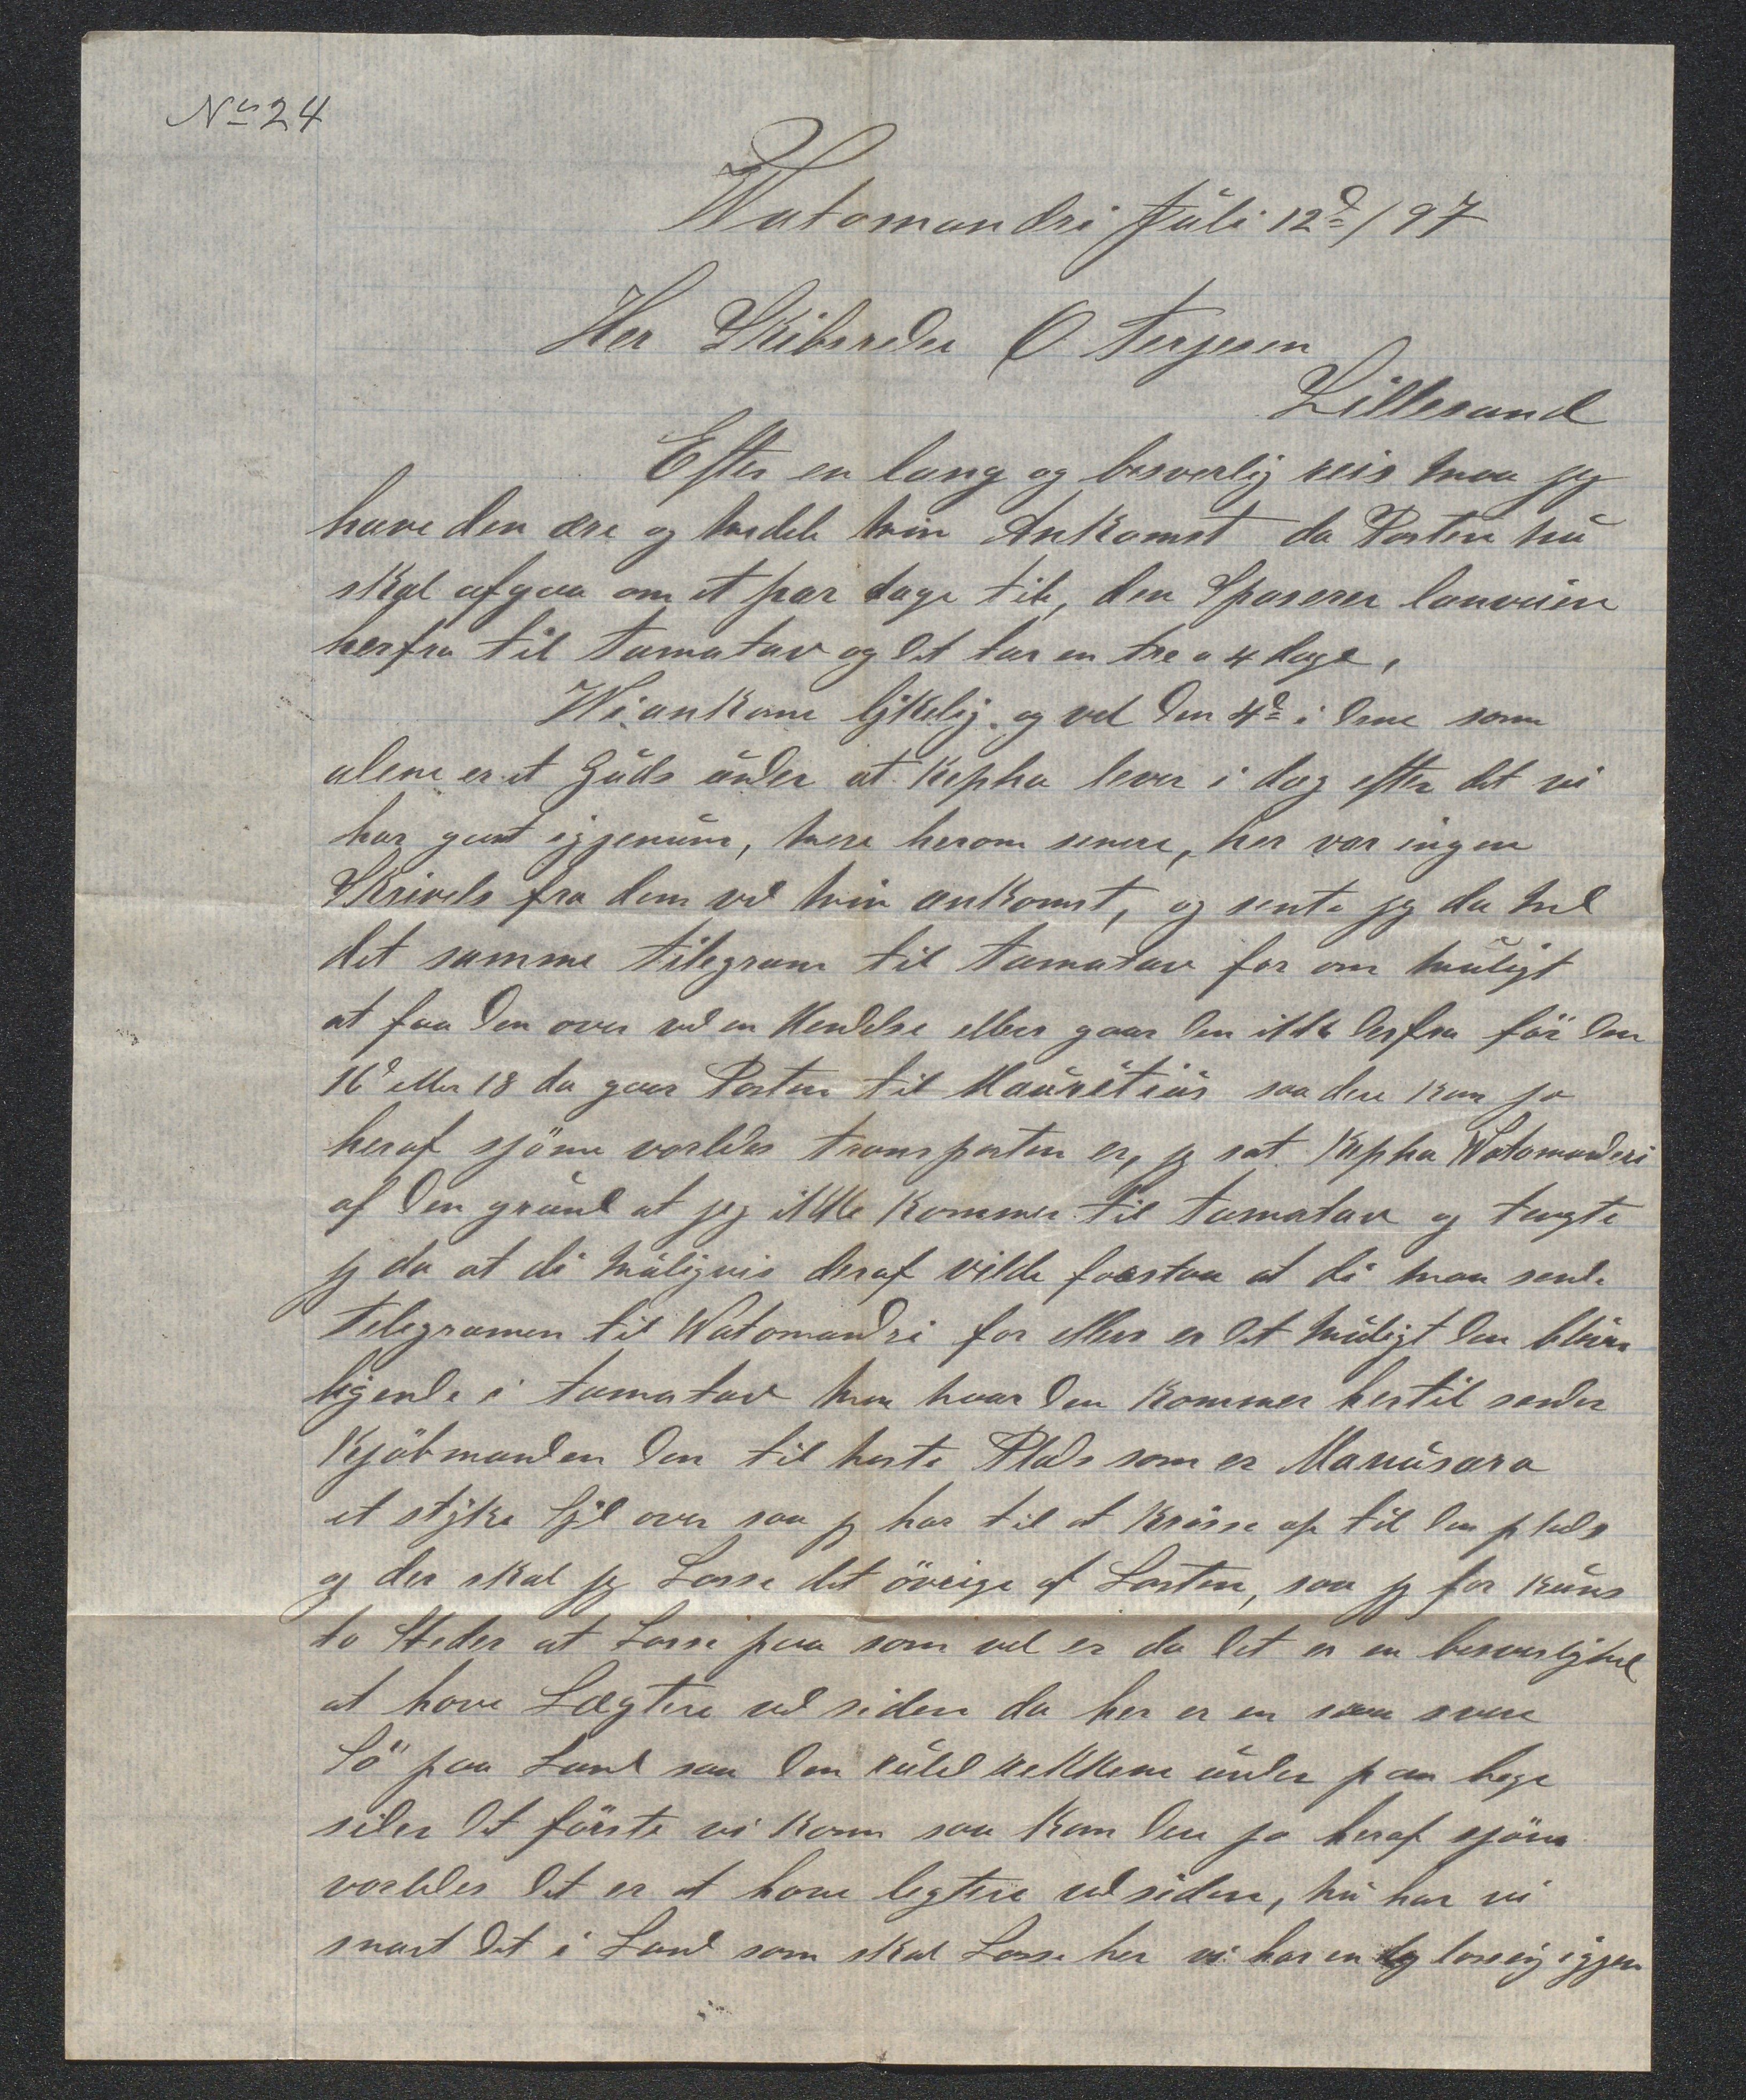 No 24
Watomandri Juli 12d/97
Her Skibsreder O Terjesen
Lillesand
Efter en lang og besverlig reis maa jeg
have den ære og medele min Ankomst da Posten nu
skal afgaa om et par dage til, den Spaserer lanveien
herfra til tamatav og det tar en tre a 4 dage,
Wi ankom lykelig og vel den 4d i dene som
alene er et Guds under at Kepha lever i dag efter det vi
har gaat igjenum, mere herom senere, her var ingen
Skrivels fra dem ved min ankomst, og sente jeg da med
det samme tilegram til tamatav for om muligt
at faa den over ved en hendelse ellers gaar den ikke derfra før den
16d eller 18 da gaar Posten til Mauritius saa dere kan jo
heraf sjønne vorledes transporten er, jg sat Kepha Watomanderi
af den grund at jeg ikke kommer til tamatav og tengte
jg da at di muligvis deraf vilde forstaa at di maa sende
telegramen til Watomandri for ellers er det muligt den blive
ligende i tamatav men hvar den kommer hertil sender
Kjøbmanden den til neste Plads som er Manusara
et styke syd over saa jg har til at krøsse op til den plads
og der skal jg Losse det øvrige af Lasten, saa jg for kuns
to Steder at Losse paa som vel er da det er en besverlighed
at have Lægtere ved siden da her er en saa svær
Sø paa Land saa den ruled rekkene under paa bege
sider det første vi kom saa kan den jo heraf sjøne
vorledes det er at have legtere ved siden, nu har vi
snart det i Land som skal Losse her vi har en dag lossing igjen